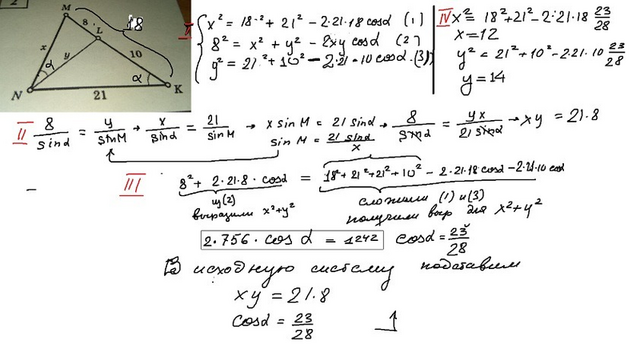 2
M
8
18
L
x
y
10
α
α
N
21
K
I
x² = 18² + 21² - 2·21·18 cosα (1)
8² = x² + y² - 2xy cosα (2)
y² = 21² + 10² - 2·21·10 cosα (3)
IV x² = 18² + 21² - 2·21·18 23/28
x = 12
y² = 21² + 10² - 2·21·10 23/28
y = 14
II 8/sinα = y/sinM → x/sinα = 21/sinM → x sinM = 21 sinα → 8/sinα = yx/21 sinα → xy = 21·8
sinM = 21 sinα/x
III 8² + 2·21·8·cosα = 18² + 21² + 21² + 10² - 2·21·18 cosα - 2·21·10 cosα
из (2)
выразили x² + y²
сложили (1) и (3)
получили выр для x² + y²
2·756·cosα = 1242
cosα = 23/28
В исходную систему подставим
xy = 21·8
cosα = 23/28